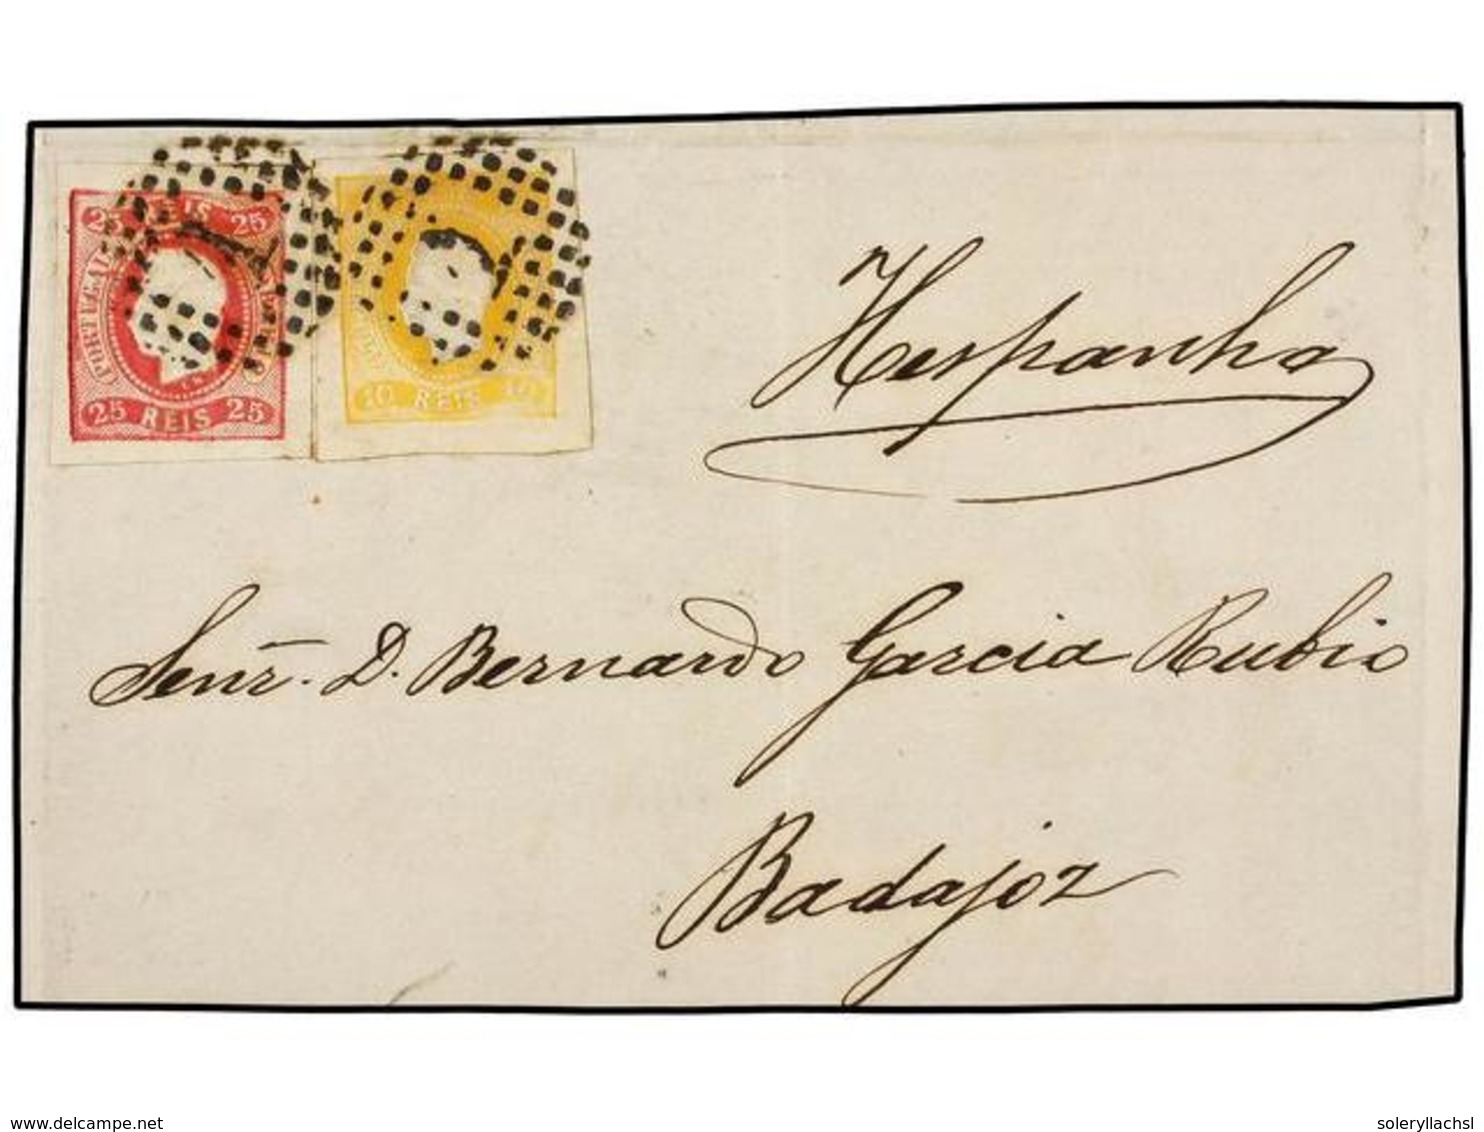 25 REIS 25
PORTUGAL
25 REIS 25
1
1
10 REIS 10
Hespanha
Senr. D. Bernardo Garcia Rubio
Badajoz
delcampe.net
soleryllachsl